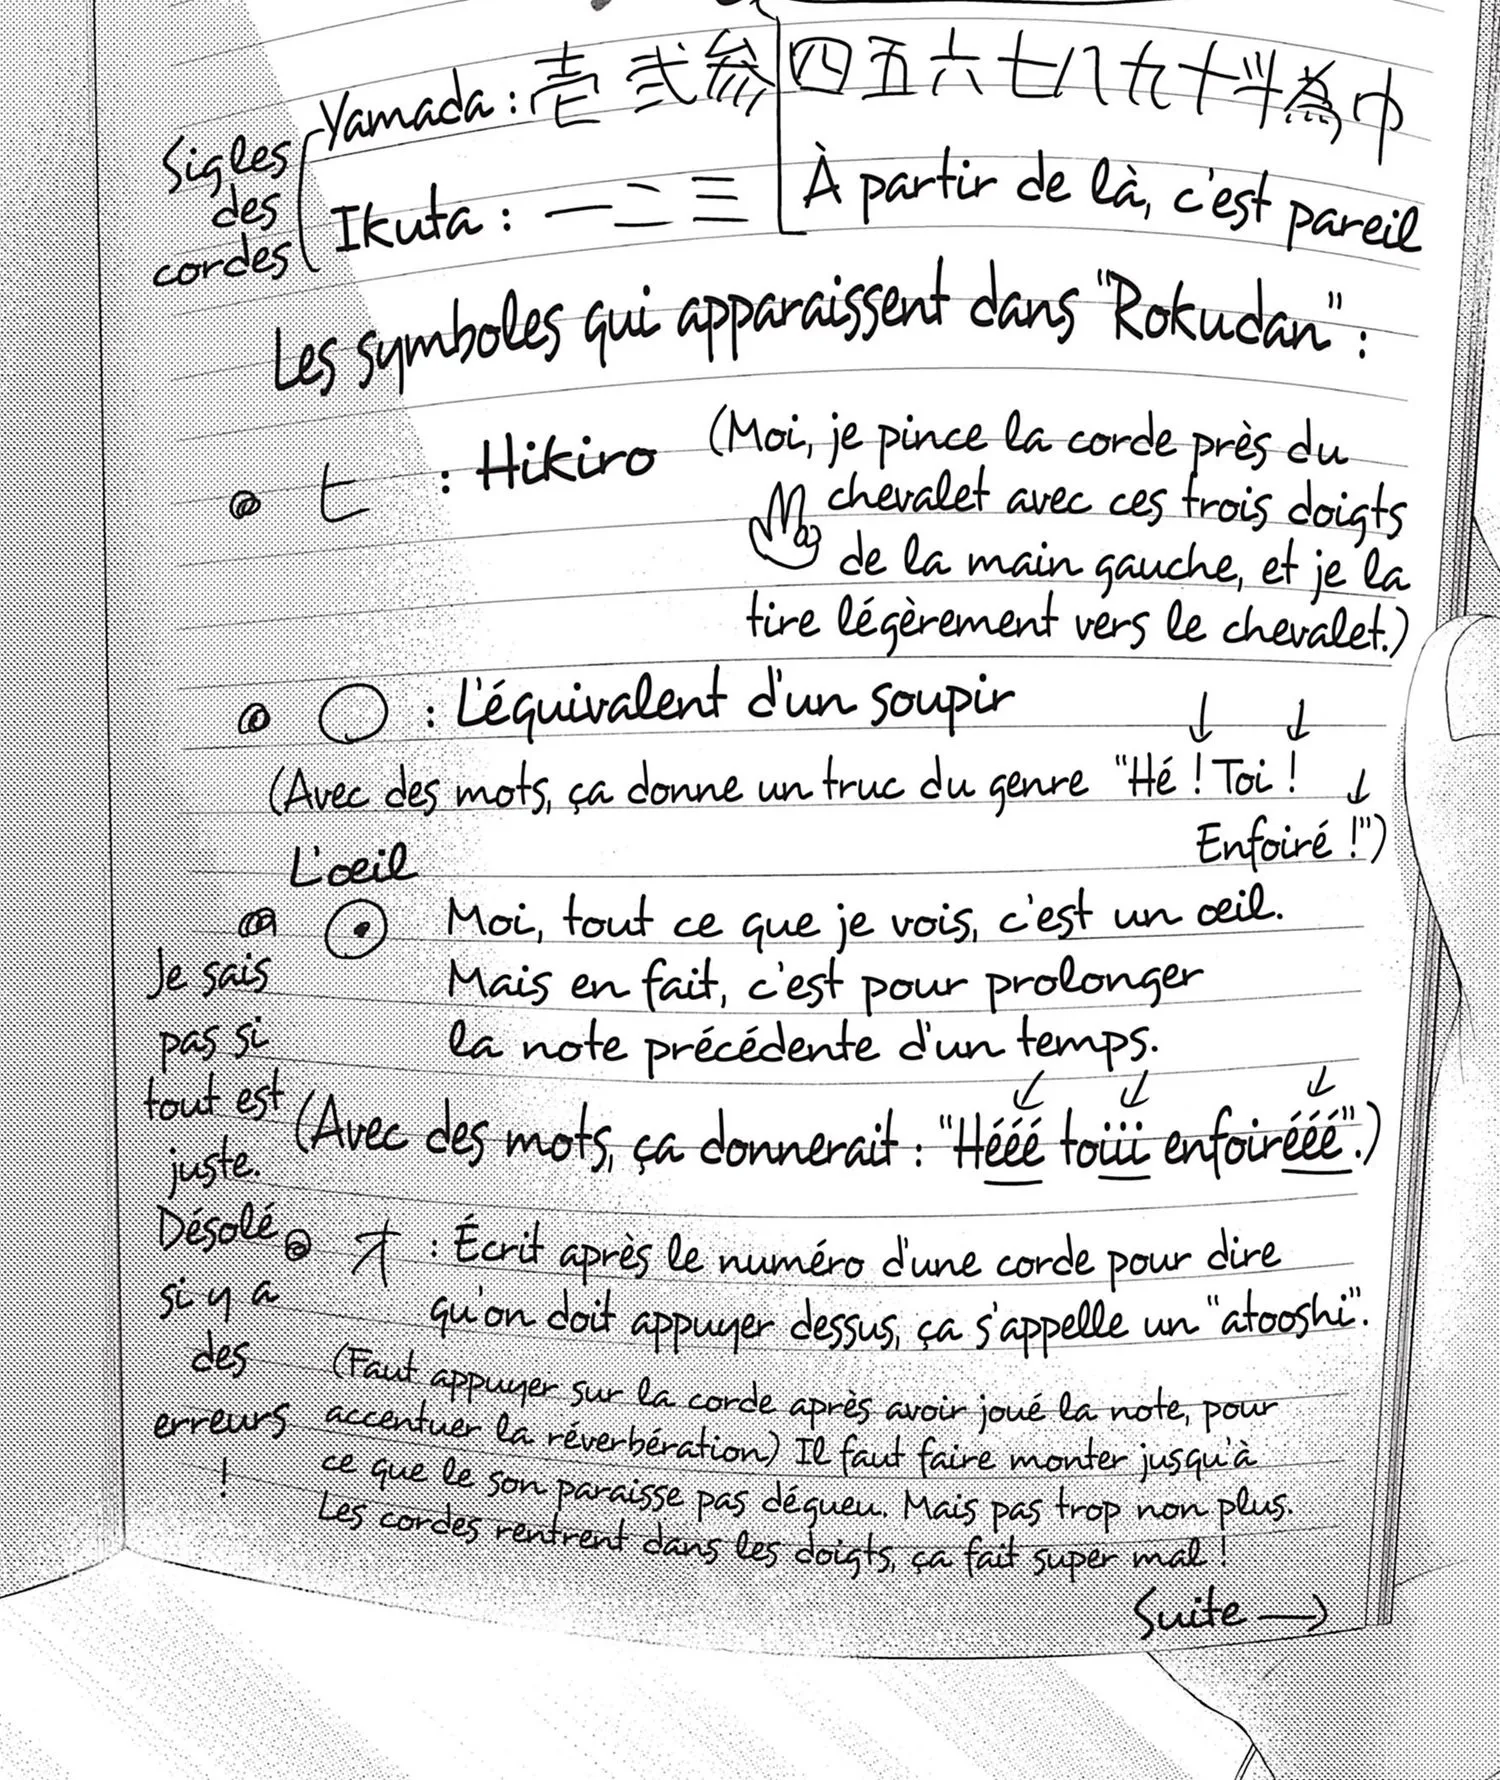 Sigles
des
cordes
Yamada : 壱 弐 参 四 五 六 七 八 九 十 斗 為 巾
Ikuta : 一 二 三
À partir de là, c'est pareil
Les symboles qui apparaissent dans "Rokudan" :
ヒ : Hikiro
(Moi, je pince la corde près du
chevalet avec ces trois doigts
de la main gauche, et je la
tire légèrement vers le chevalet.)
○ : L'équivalent d'un soupir
↓ ↓
(Avec des mots, ça donne un truc du genre "Hé ! Toi !
↓
Enfoiré !")
L'œil
Moi, tout ce que je vois, c'est un œil.
Mais en fait, c'est pour prolonger
la note précédente d'un temps.
(Avec des mots, ça donnerait : "Hééé toiii enfoirééé".)
オ : Écrit après le numéro d'une corde pour dire
qu'on doit appuyer dessus, ça s'appelle un "atooshi".
(Faut appuyer sur la corde après avoir joué la note, pour
accentuer la réverbération) Il faut faire monter jusqu'à
ce que le son paraisse pas dégueu. Mais pas trop non plus.
Les cordes rentrent dans les doigts, ça fait super mal !
Je sais
pas si
tout est
juste.
Désolé
si y a
des
erreurs
!
Suite →